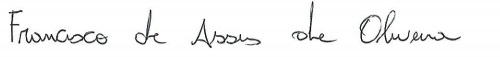 Francisco de Assis de Oliveira